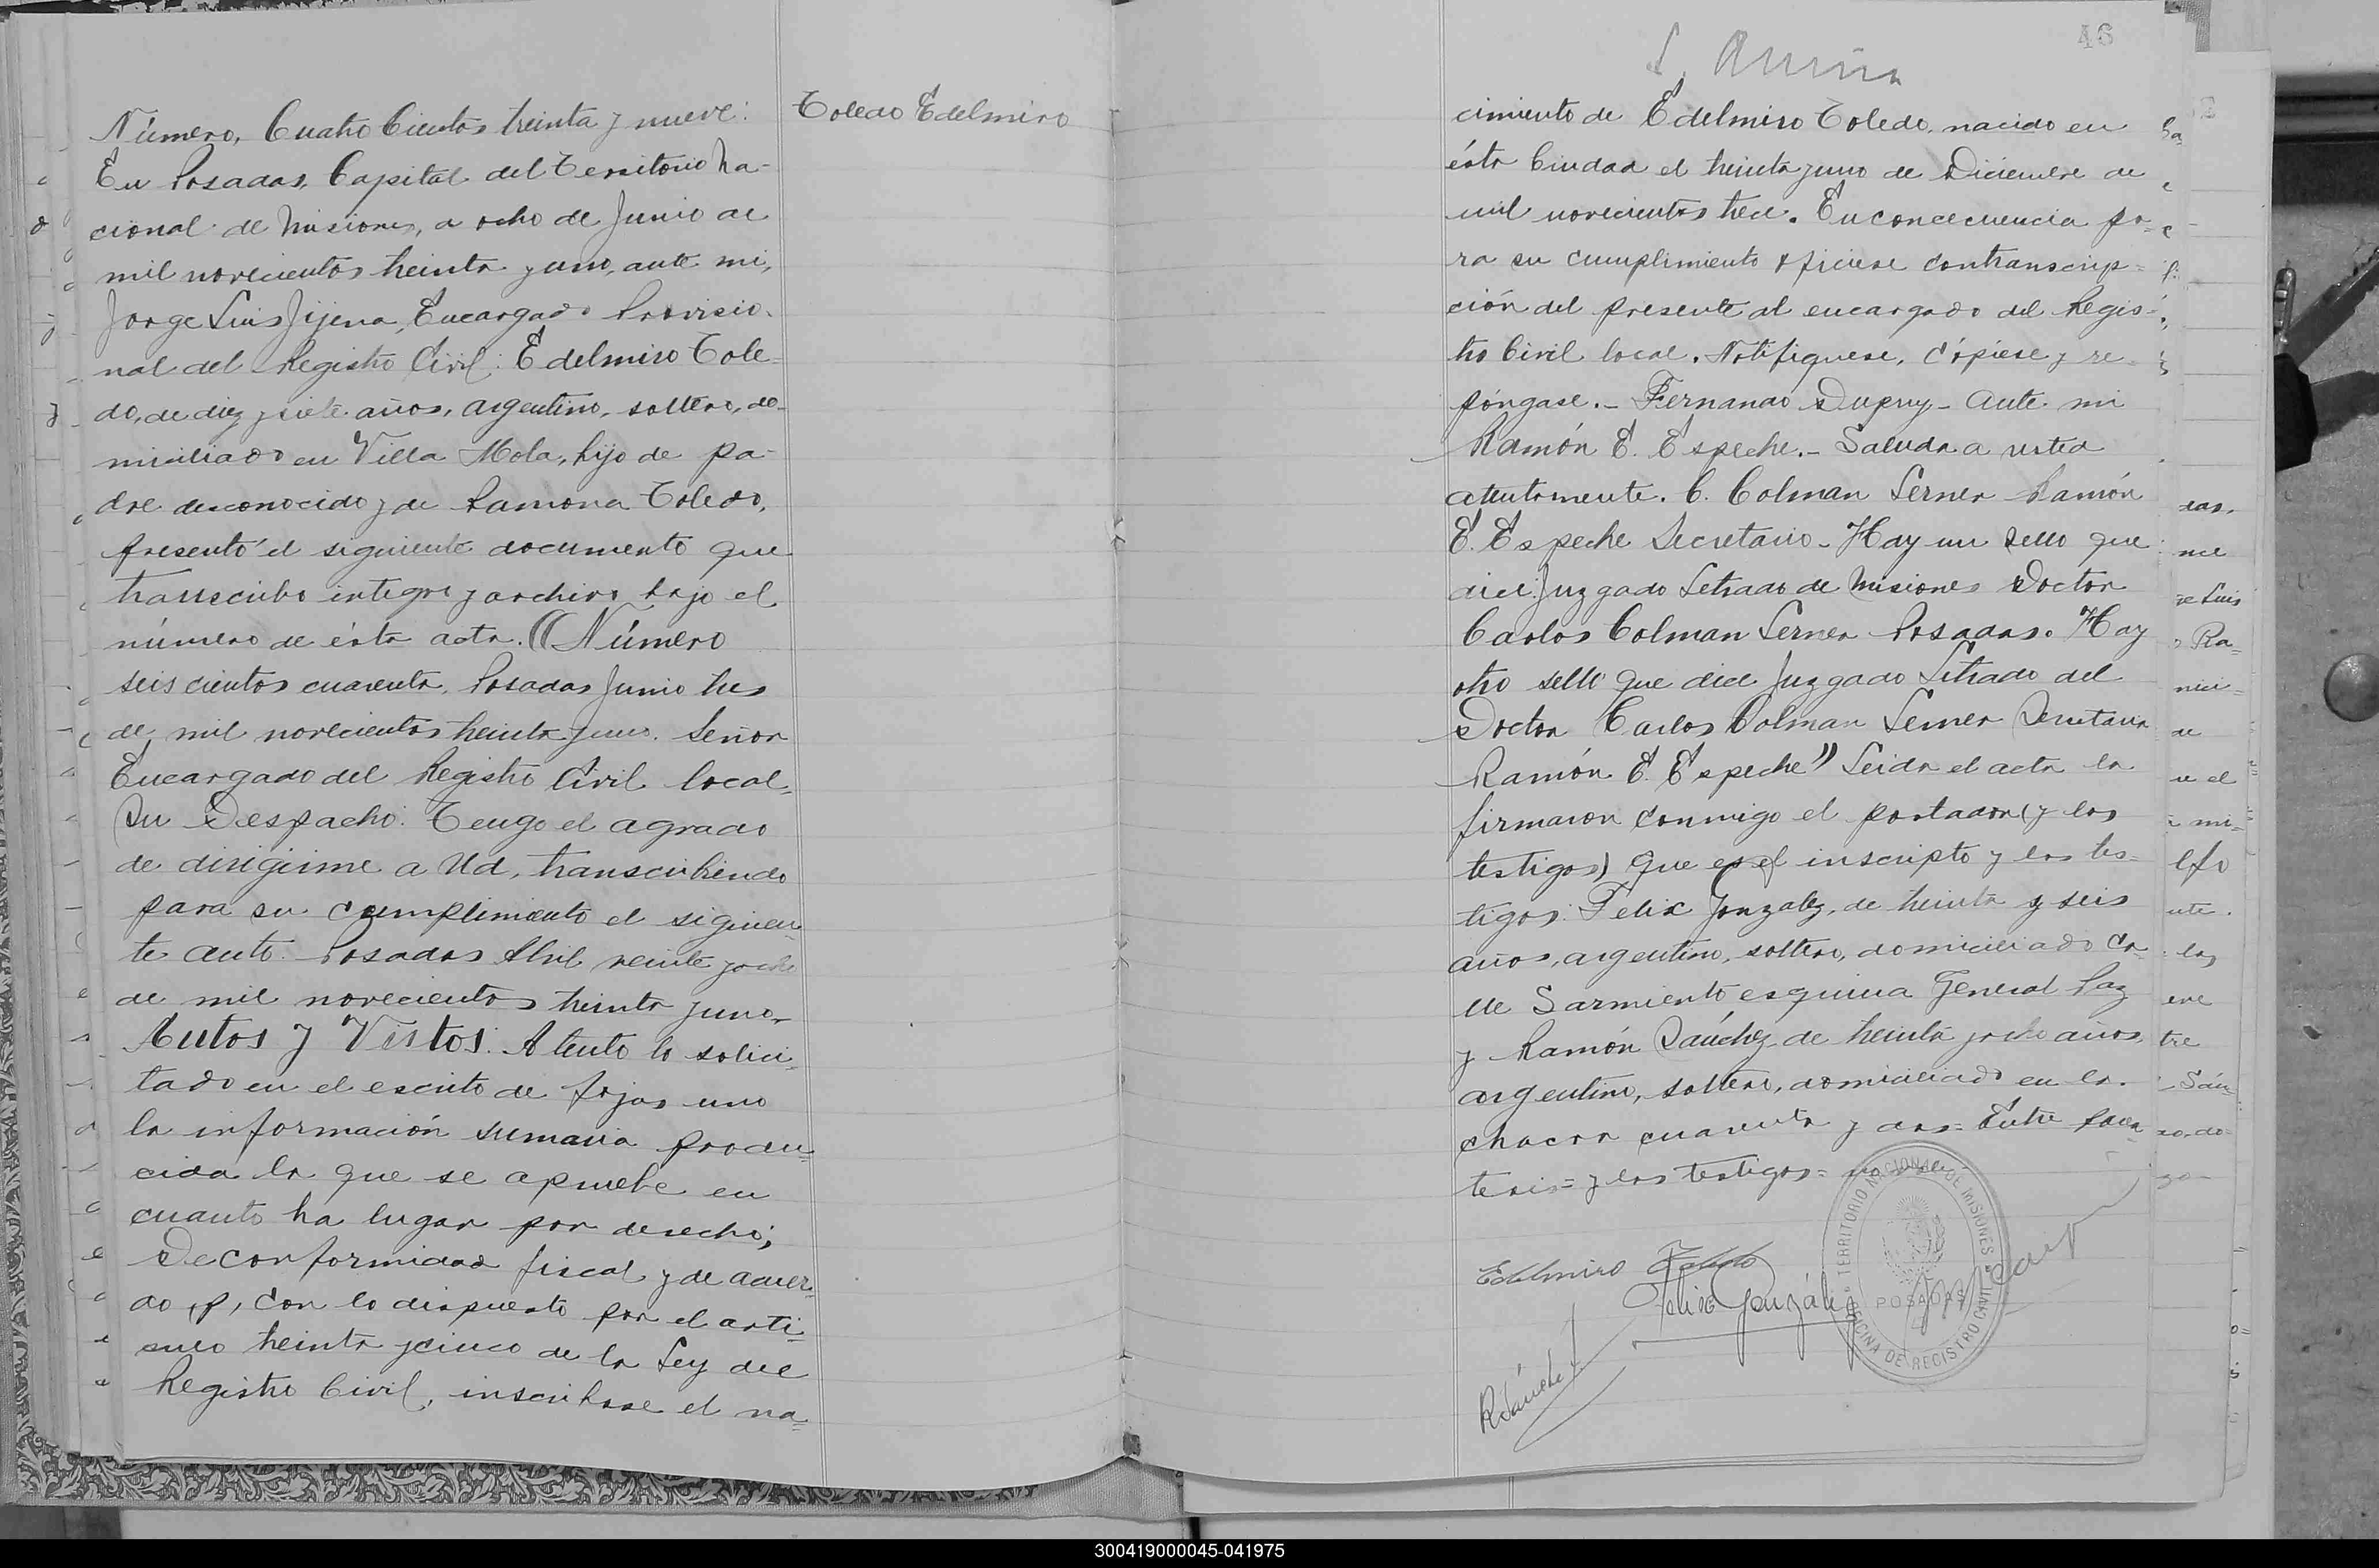 Número, Cuatro Cientos treinta y nueve:
En Posadas, Capital del Territorio Na-
cional de Misiones, a ocho de Junio de
mil novecientos treinta y uno, ante mi,
Jorge Luis Jijena, Encargado Provisio-
nal del Registro Civil: Edelmiro Tole-
do, de diez y siete años, argentino, soltero, do-
miciliado en Villa Mola, hijo de pa-
dre desconocido y de Ramona Toledo,
presentó el siguiente documento que
transcribo integro y archivo bajo el
número de ésta acta. ((Número
seiscientos cuarenta. Posadas Junio tres
de mil novecientos treinta y uno. Señor
Encargado del Registro Civil local-
Su Despacho: Tengo el agrado
de dirigirme a Ud, transcribiendo
para su cumplimiento el siguien-
te auto: Posadas Abril veinte y ocho
de mil novecientos treinta y uno-
Autos y Vistos: Atento lo solici-
tado en el escrito de fojas uno
la información sumaria produ-
cida la que se apruebe en
cuanto ha lugar por derecho;
De conformidad fiscal y de acuer-
do, p, con lo dispuesto por el arti-
culo treinta y cinco de la Ley del
Registro Civil, inscribase el na-
Toledo Edelmiro
46
cimiento de Edelmiro Toledo, nacido en
ésta Ciudad el treinta y uno de Diciembre de
mil novecientos trece. En concecuencia pa-
ra su cumplimiento ofíciese con transcrip-
ción del presente al encargado del Regis-
tro Civil local. Notifiquese, cópiese y re-
póngase.- Fernando Dupuy- Ante mi
Ramón E. Espeche.- Saluda a usted
atentamente. C. Colman Lerner Ramón
E. Espeche Secretario- Hay un sello que
dice: Juzgado Letrado de Misiones Doctor
Carlos Colman Lerner Posadas. Hay
otro sello que dice Juzgado Letrado del
Doctor Carlos Colman Lerner Secretaria
Ramón E. Espeche)) Leida el acta la
firmaron conmigo el portador (y los
testigos) que es el inscripto y los tes-
tigos: Felix Gonzalez, de treinta y seis
años, argentino, soltero, domiciliado Ca-
lle Sarmiento esquina General Paz
y Ramón Sánchez de treinta y ocho años
argentino, soltero, domiciliado en la
chacra cuarenta y dos= Entre paren
tesis= y los testigos= no vale
Edelmiro Toledo
Felix González
RSánchez
TERRITORIO NACIONAL DE MISIONES
OFICINA DE REGISTRO CIVIL
POSADAS
300419000045-041975